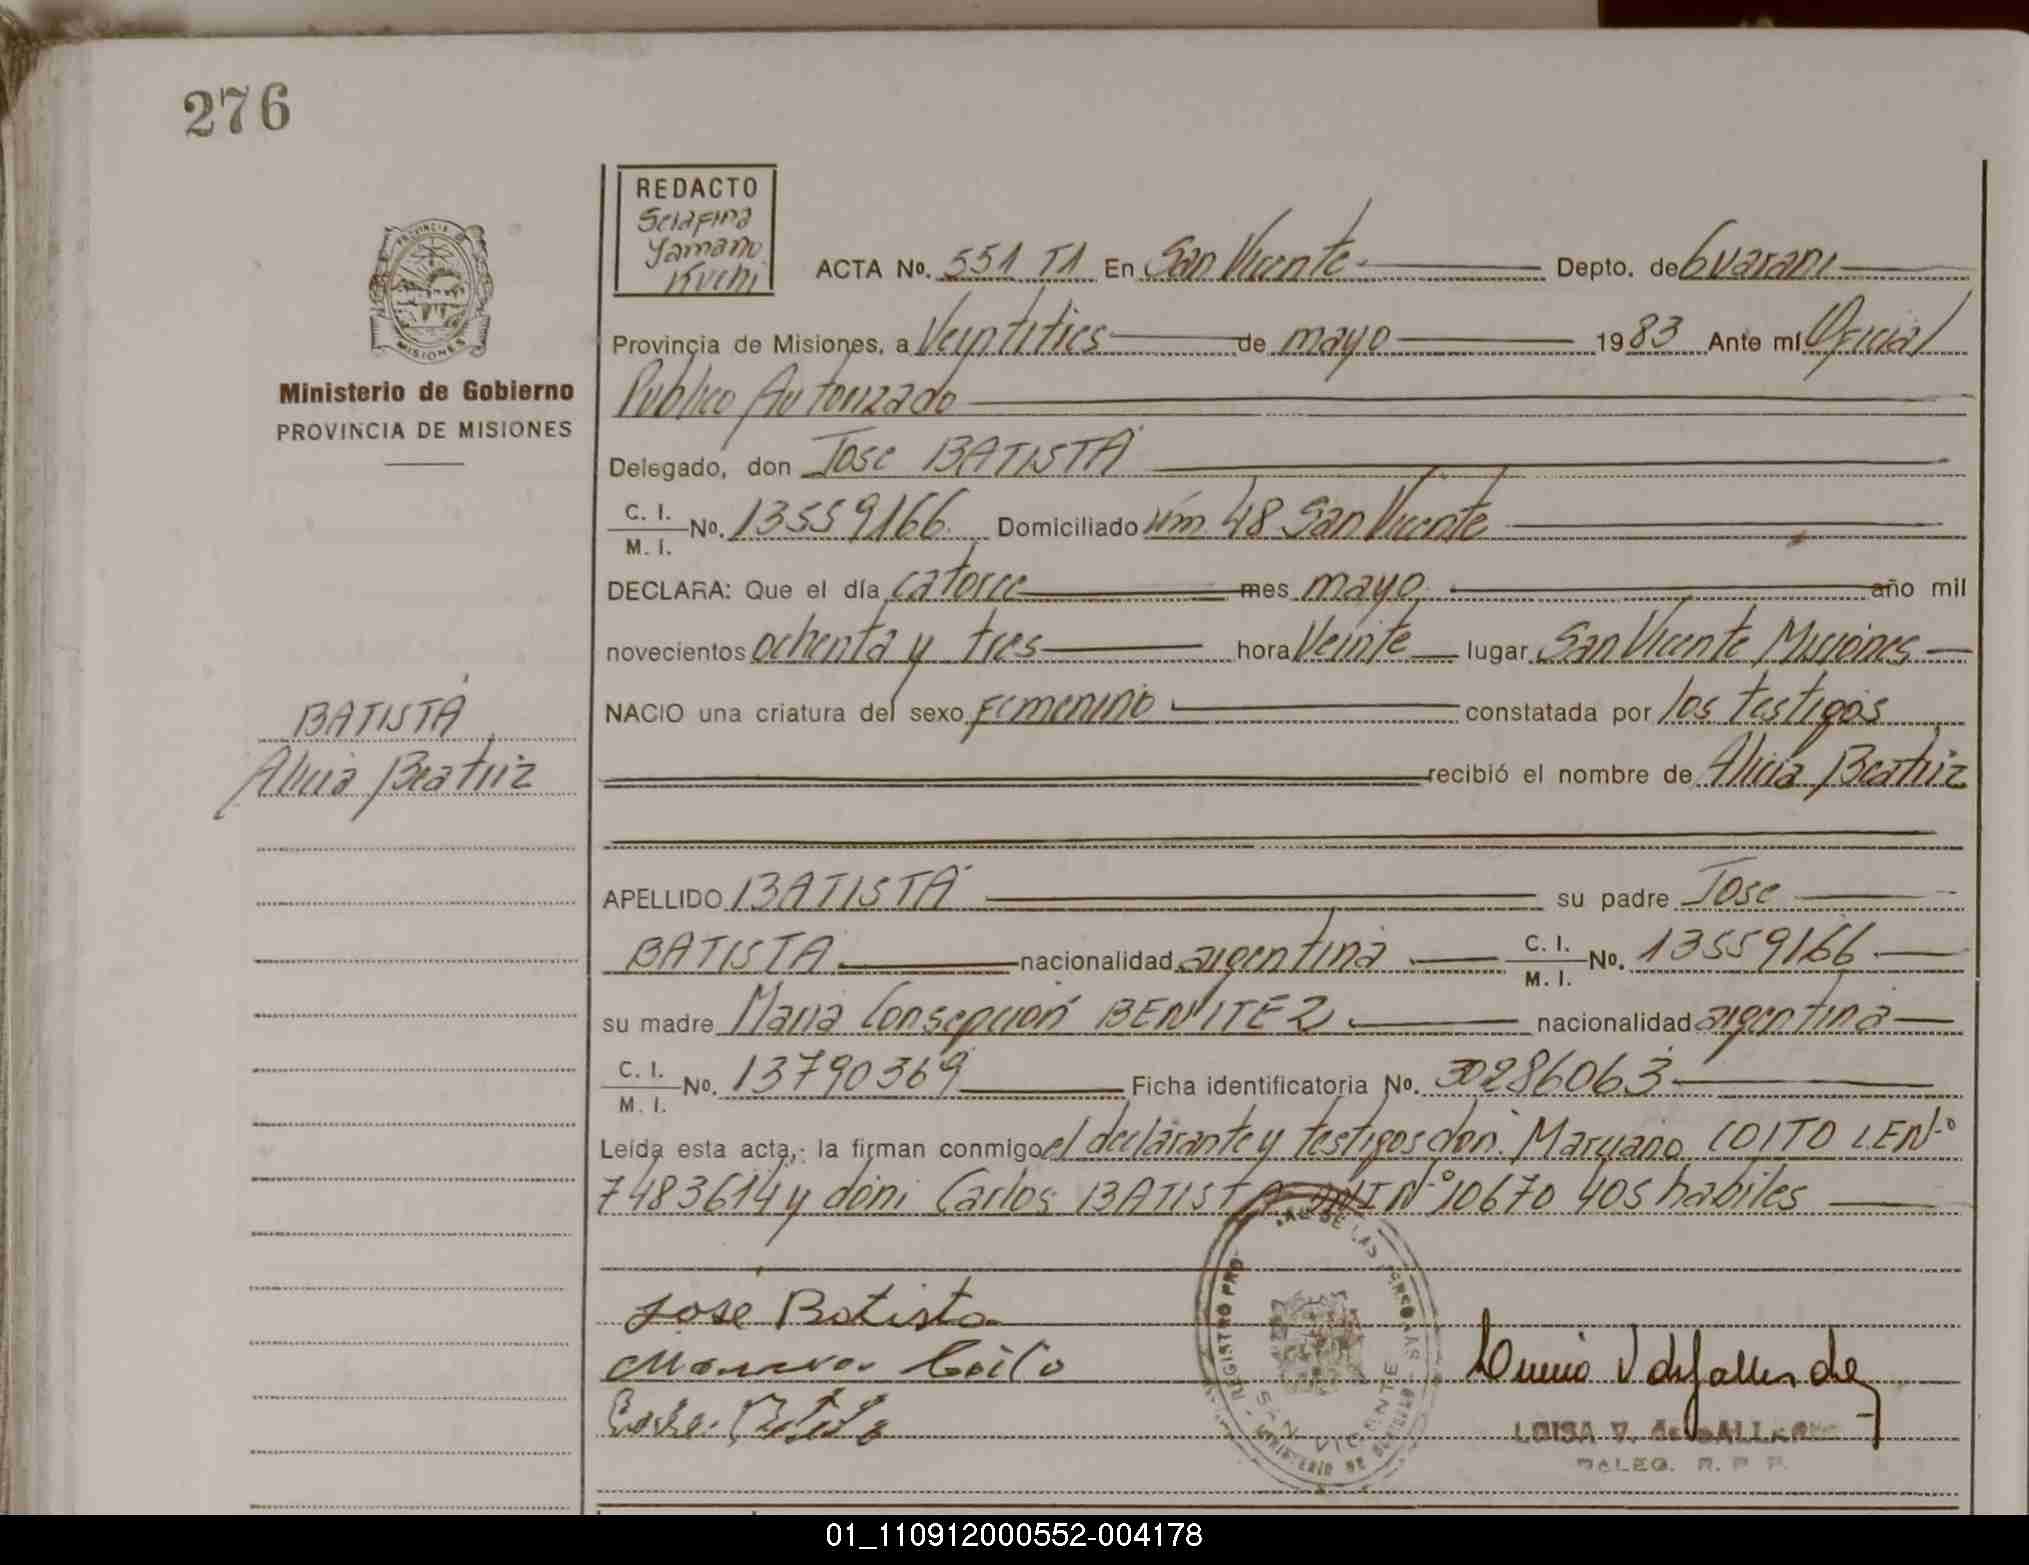 276
REDACTO
Serafina
Yamano
Kuchi
ACTA No. 551 T1 En San Vicente Depto. de Guarani
PROVINCIA DE MISIONES
Provincia de Misiones, a Veintitres de mayo 1983 Ante mí Oficial
Ministerio de Gobierno
Publico Autorizado
PROVINCIA DE MISIONES
Delegado, don Jose BATISTA
C. I.
M. I. No. 13559166 Domiciliado km 48 San Vicente
DECLARA: Que el día catorce mes mayo año mil
novecientos ochenta y tres hora Veinte lugar San Vicente Misiones
BATISTA
NACIO una criatura del sexo Femenino constatada por los testigos
Alicia Beatriz
recibió el nombre de Alicia Beatriz
APELLIDO BATISTA su padre Jose
BATISTA nacionalidad argentina C. I.
M. I. No. 13559166
su madre Maria Consepción BENITEZ nacionalidad argentina
C. I.
M. I. No. 13790369 Ficha identificatoria No. 30286063
Leída esta acta, la firman conmigo el declarante y testigos don: Marciano COITO LE Nº
7483614 y don: Carlos BATISTA DNI Nº 10670405 habiles
José Batista
Coito
REGISTRO PRO DE LAS PERSONAS
SAN VICENTE
MINISTERIO DE GOBIERNO
LUISA V. de
DELEG. R. P. P.
01_110912000552-004178